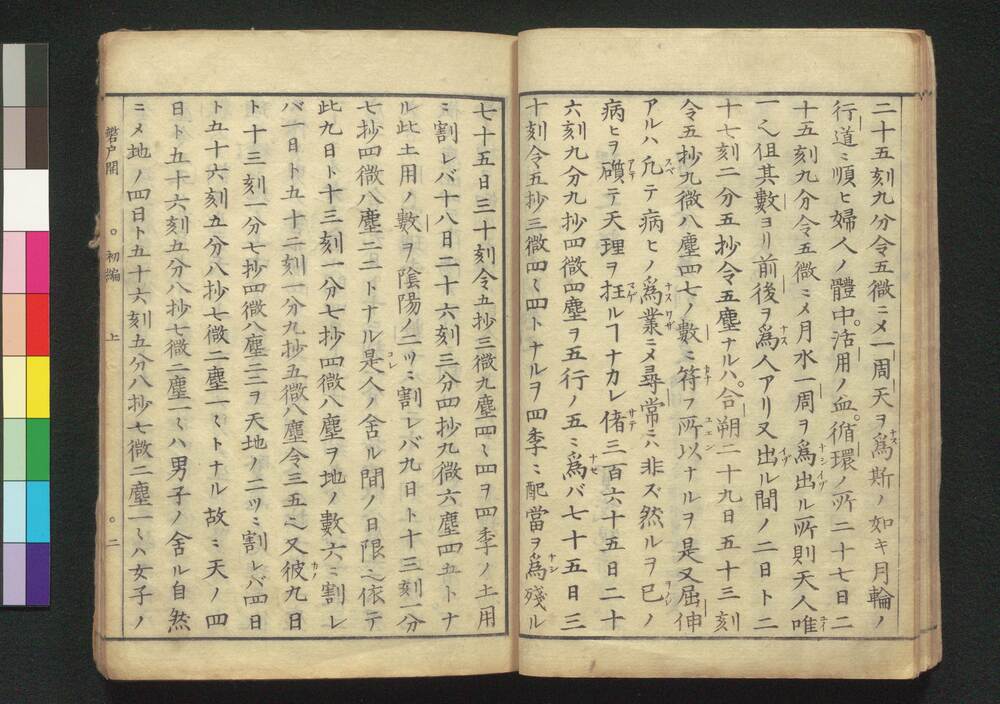 二十五刻九分令五微ニメ一周天ヲ為斯ノ如キ月輪ノ
行道ニ順ヒ婦人ノ體中。活用ノ血。循環ノ所二十七日二
十五刻九分令五微ニメ月水一周ヲ為出ル所則天人唯
一之但其數ヨリ前後ヲ為人アリ又出ル間ノ二日ト二
十七刻二分五抄令五塵ナルハ。合朔二十九日五十三刻
令五抄九微八塵四七ノ數ニ符フ所以ナルヲ是又屈伸
アルハ凡テ病ヒノ為業ニメ尋常ニハ非ズ然ルヲ已ノ
病ヒヲ礩テ天理ヲ抂ルヿナカレ偖三百六十五日二十
六刻九分九抄四微四塵ヲ五行ノ五ニ為バ七十五日三
十刻令五抄三微四〻四トナルヲ四季ニ配當ヲ為殘ル
七十五日三十刻令五抄三微九塵四〻四ヲ四季ノ土用
ニ割レバ十八日二十六刻三分四抄九微六塵四五トナ
ル此土用ノ數ヲ陰陽ノ二ツニ割レバ九日ト十三刻一分
七抄四微八塵二二トナル是人ノ舍ル間ノ日限之依テ
此九日ト十三刻一分七抄四微八塵ヲ地ノ數六ニ割レ
バ一日ト五十二刻一分九抄五微八塵令三五之又彼九日
ト十三刻一分七抄四微八塵二二ヲ天地ノ二ツニ割レバ四日
ト五十六刻五分八抄七微二塵一〻トナル故ニ天ノ四
日ト五十六刻五分八抄七微二塵一〻ハ男子ノ舍ル自然
ニメ地ノ四日ト五十六刻五分八抄七微二塵一〻ハ女子ノ
磐戸開 ○初編 上 ○二